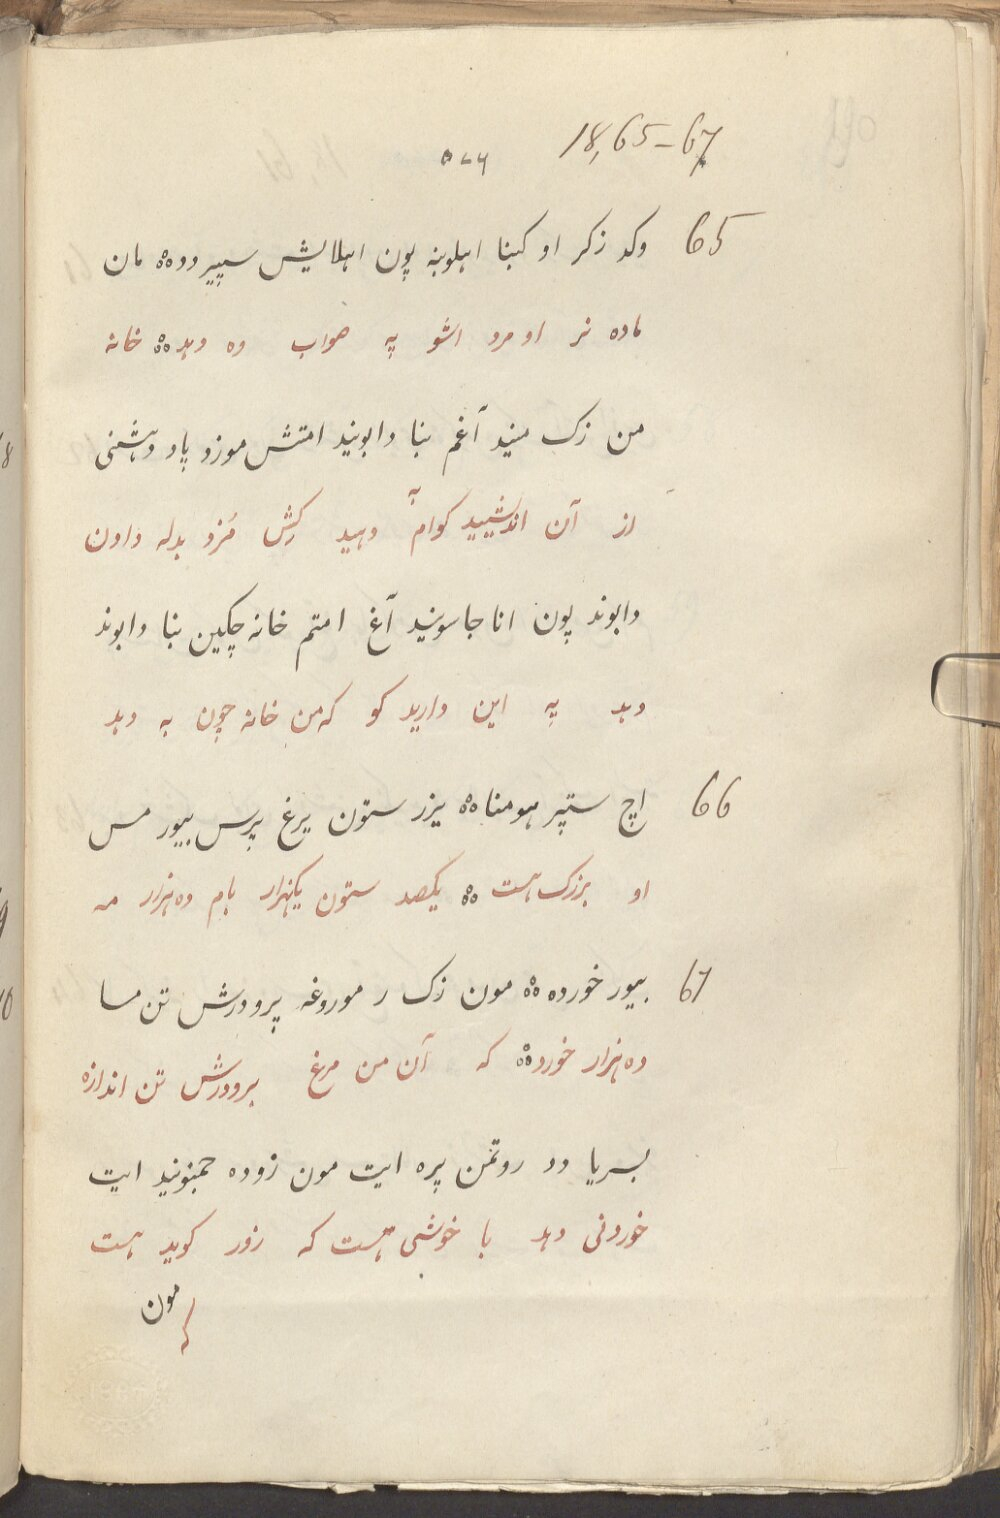 18,65-67
٥٤٦
65 وکد زکر او کبنا اهلوبنه پون اهلایش سپیر دوه ؞ مان
ماده نر او مرد اشو په صواب ده دهد ؞ خانه
من زک منید آغم بنا دابونید امتش موزد پاد دهشنی
از آن اندشیید کوام به دهید کش مزد بدله دادن
دابوند پون انا جاسونید آغ امتم خانه چکین بنا دابوند
دهد په این دارید کو که من خانه چون به دهد
66 اچ ستپر هومنا ؞ یزر ستون یرغ پرس بیور مس
او بزرک هست ؞ یکصد ستون یکهزار بام ده هزار مه
67 بیور خورده ؞ مون زک ر موروغه پرودرش تن مسا
ده هزار خورد ؞ که آن من مرغ پرودرش تن اندازه
بسریا دد روتمن پره ایت مون زوده جمنونید ایت
خوردنی دهد با خوشی هست که زور کوید هست
مون